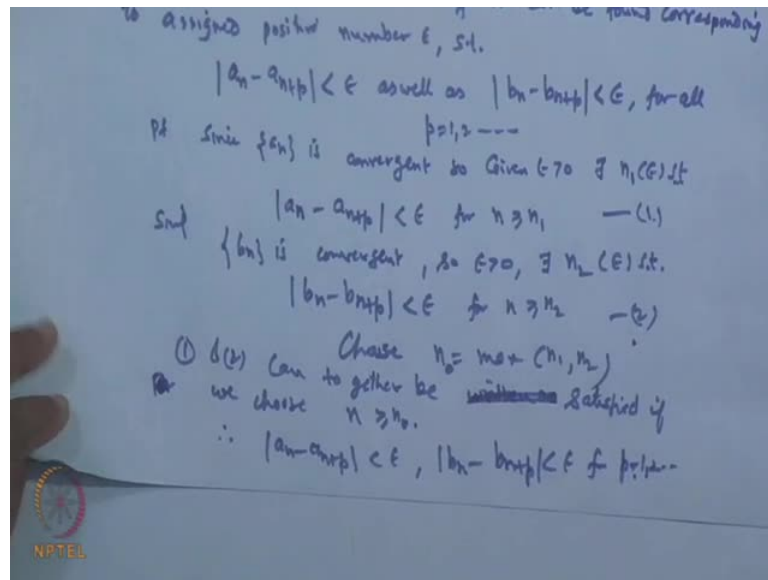 to assigned positive number ε, s.t.
found corresponding
|aₙ - aₙ₊ₚ| < ε as well as |bₙ - bₙ₊ₚ| < ε, for all
p=1,2 ----
Pf Since {aₙ} is convergent so Given ε>0 ∃ n₁(ε) s.t
|aₙ - aₙ₊ₚ| < ε for n ≥ n₁ —(1)
{bₙ} is convergent, so ε>0, ∃ n₂(ε) s.t.
|bₙ - bₙ₊ₚ| < ε for n ≥ n₂ —(2)
Choose n₀ = max (n₁, n₂)
① &(2) Can to gether be satisfied if
we choose n ≥ n₀.
∴ |aₙ - aₙ₊ₚ| < ε, |bₙ - bₙ₊ₚ| < ε for p=1,2..
NPTEL